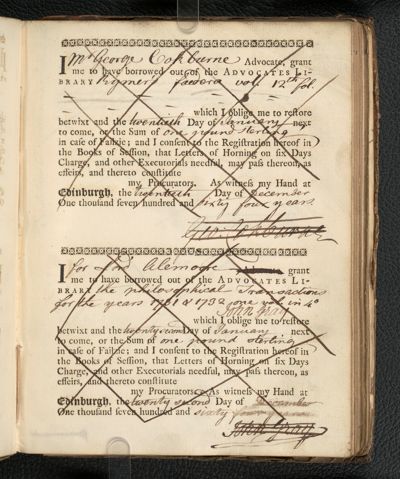 I Mr George Cockburne Advocate, grant
me to have borrowed out of the ADVOCATES LI-
BRARY Rymeri foedera vol. 12th fol.
which I oblige me to restore
betwixt and the twentieth Day of January next
to come, or the Sum of one pound sterling
in case of Failzie; and I consent to the Registration hereof in
the Books of Session, that Letters of Horning on six Days
Charge, and other Executorials needful, may pass thereon, as
effeirs, and thereto constitute
my Procurators. As witness my Hand at
Edinburgh, the twentieth Day of December
One thousand seven hundred and sixty four years.
Geo: Cockburne
I For Lord Alemoor Advocate, grant
me to have borrowed out of the ADVOCATES LI-
BRARY the philosophical Transactions
for the years 1731 & 1732 one vol: in 4o
John Gray
which I oblige me to restore
betwixt and the twenty second Day of January next
to come, or the Sum of one pound sterling
in case of Failzie; and I consent to the Registration hereof in
the Books of Session, that Letters of Horning on six Days
Charge, and other Executorials needful, may pass thereon, as
effeirs, and thereto constitute
my Procurators. As witness my Hand at
Edinburgh, the twenty second Day of December
One thousand seven hundred and sixty four years
John Gray